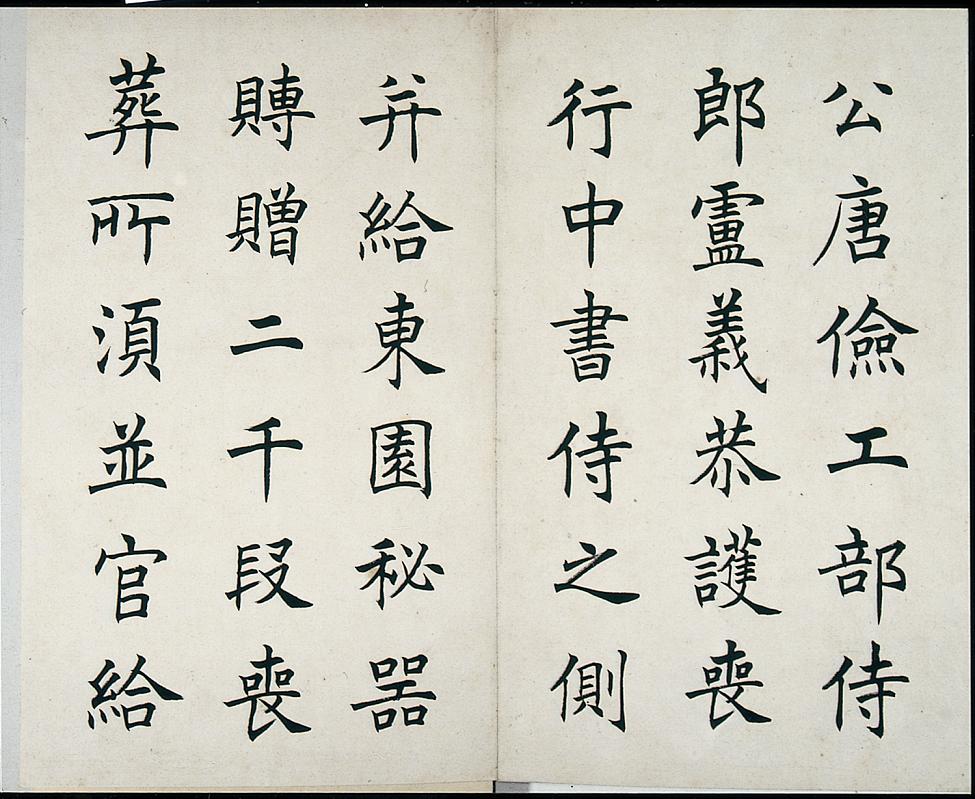 公唐儉工部侍
郎盧義恭護喪
行中書侍之側
并給東園秘器
賻贈二千段喪
葬所須並官給